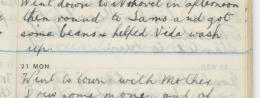 Went down to Wshovel in afternoon
then round to Sams and got
some beans & helped Vida wash
up.
21 MON
Went to town with Mother.
Drew some money and got